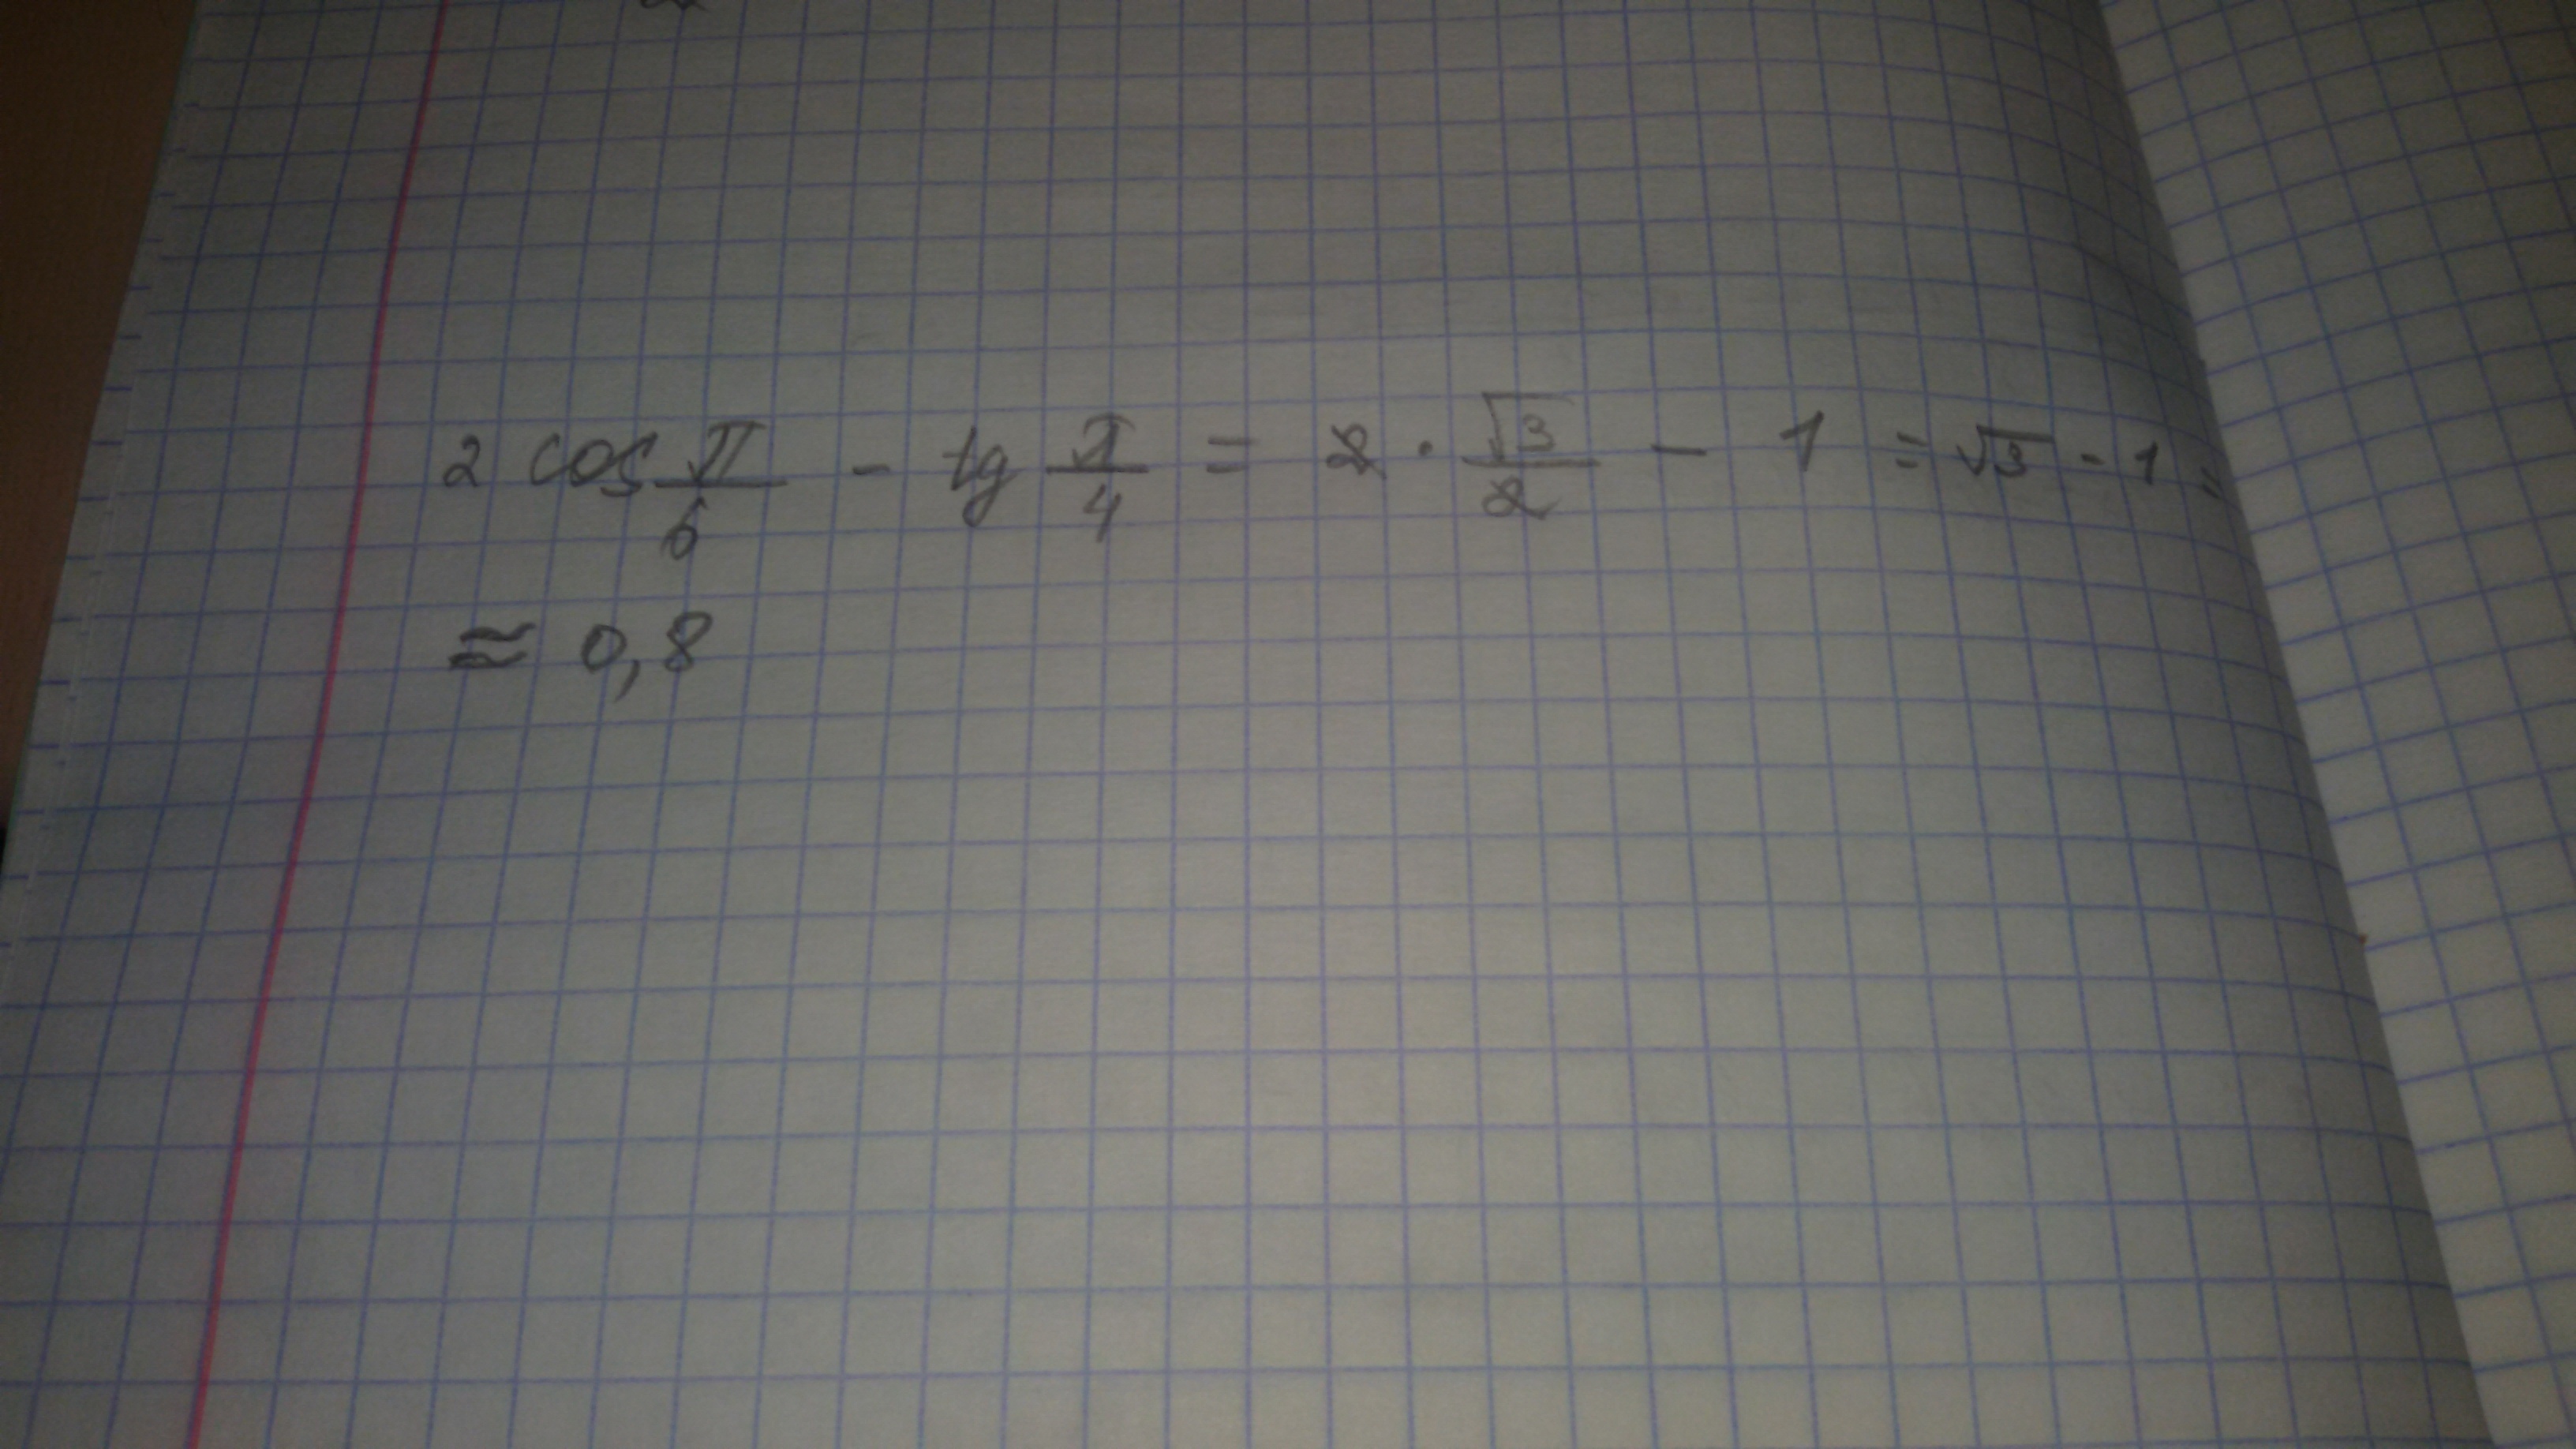 2 cos π/6 - tg π/4 = 2 · √3/2 - 1 = √3 - 1 =
≈ 0,8